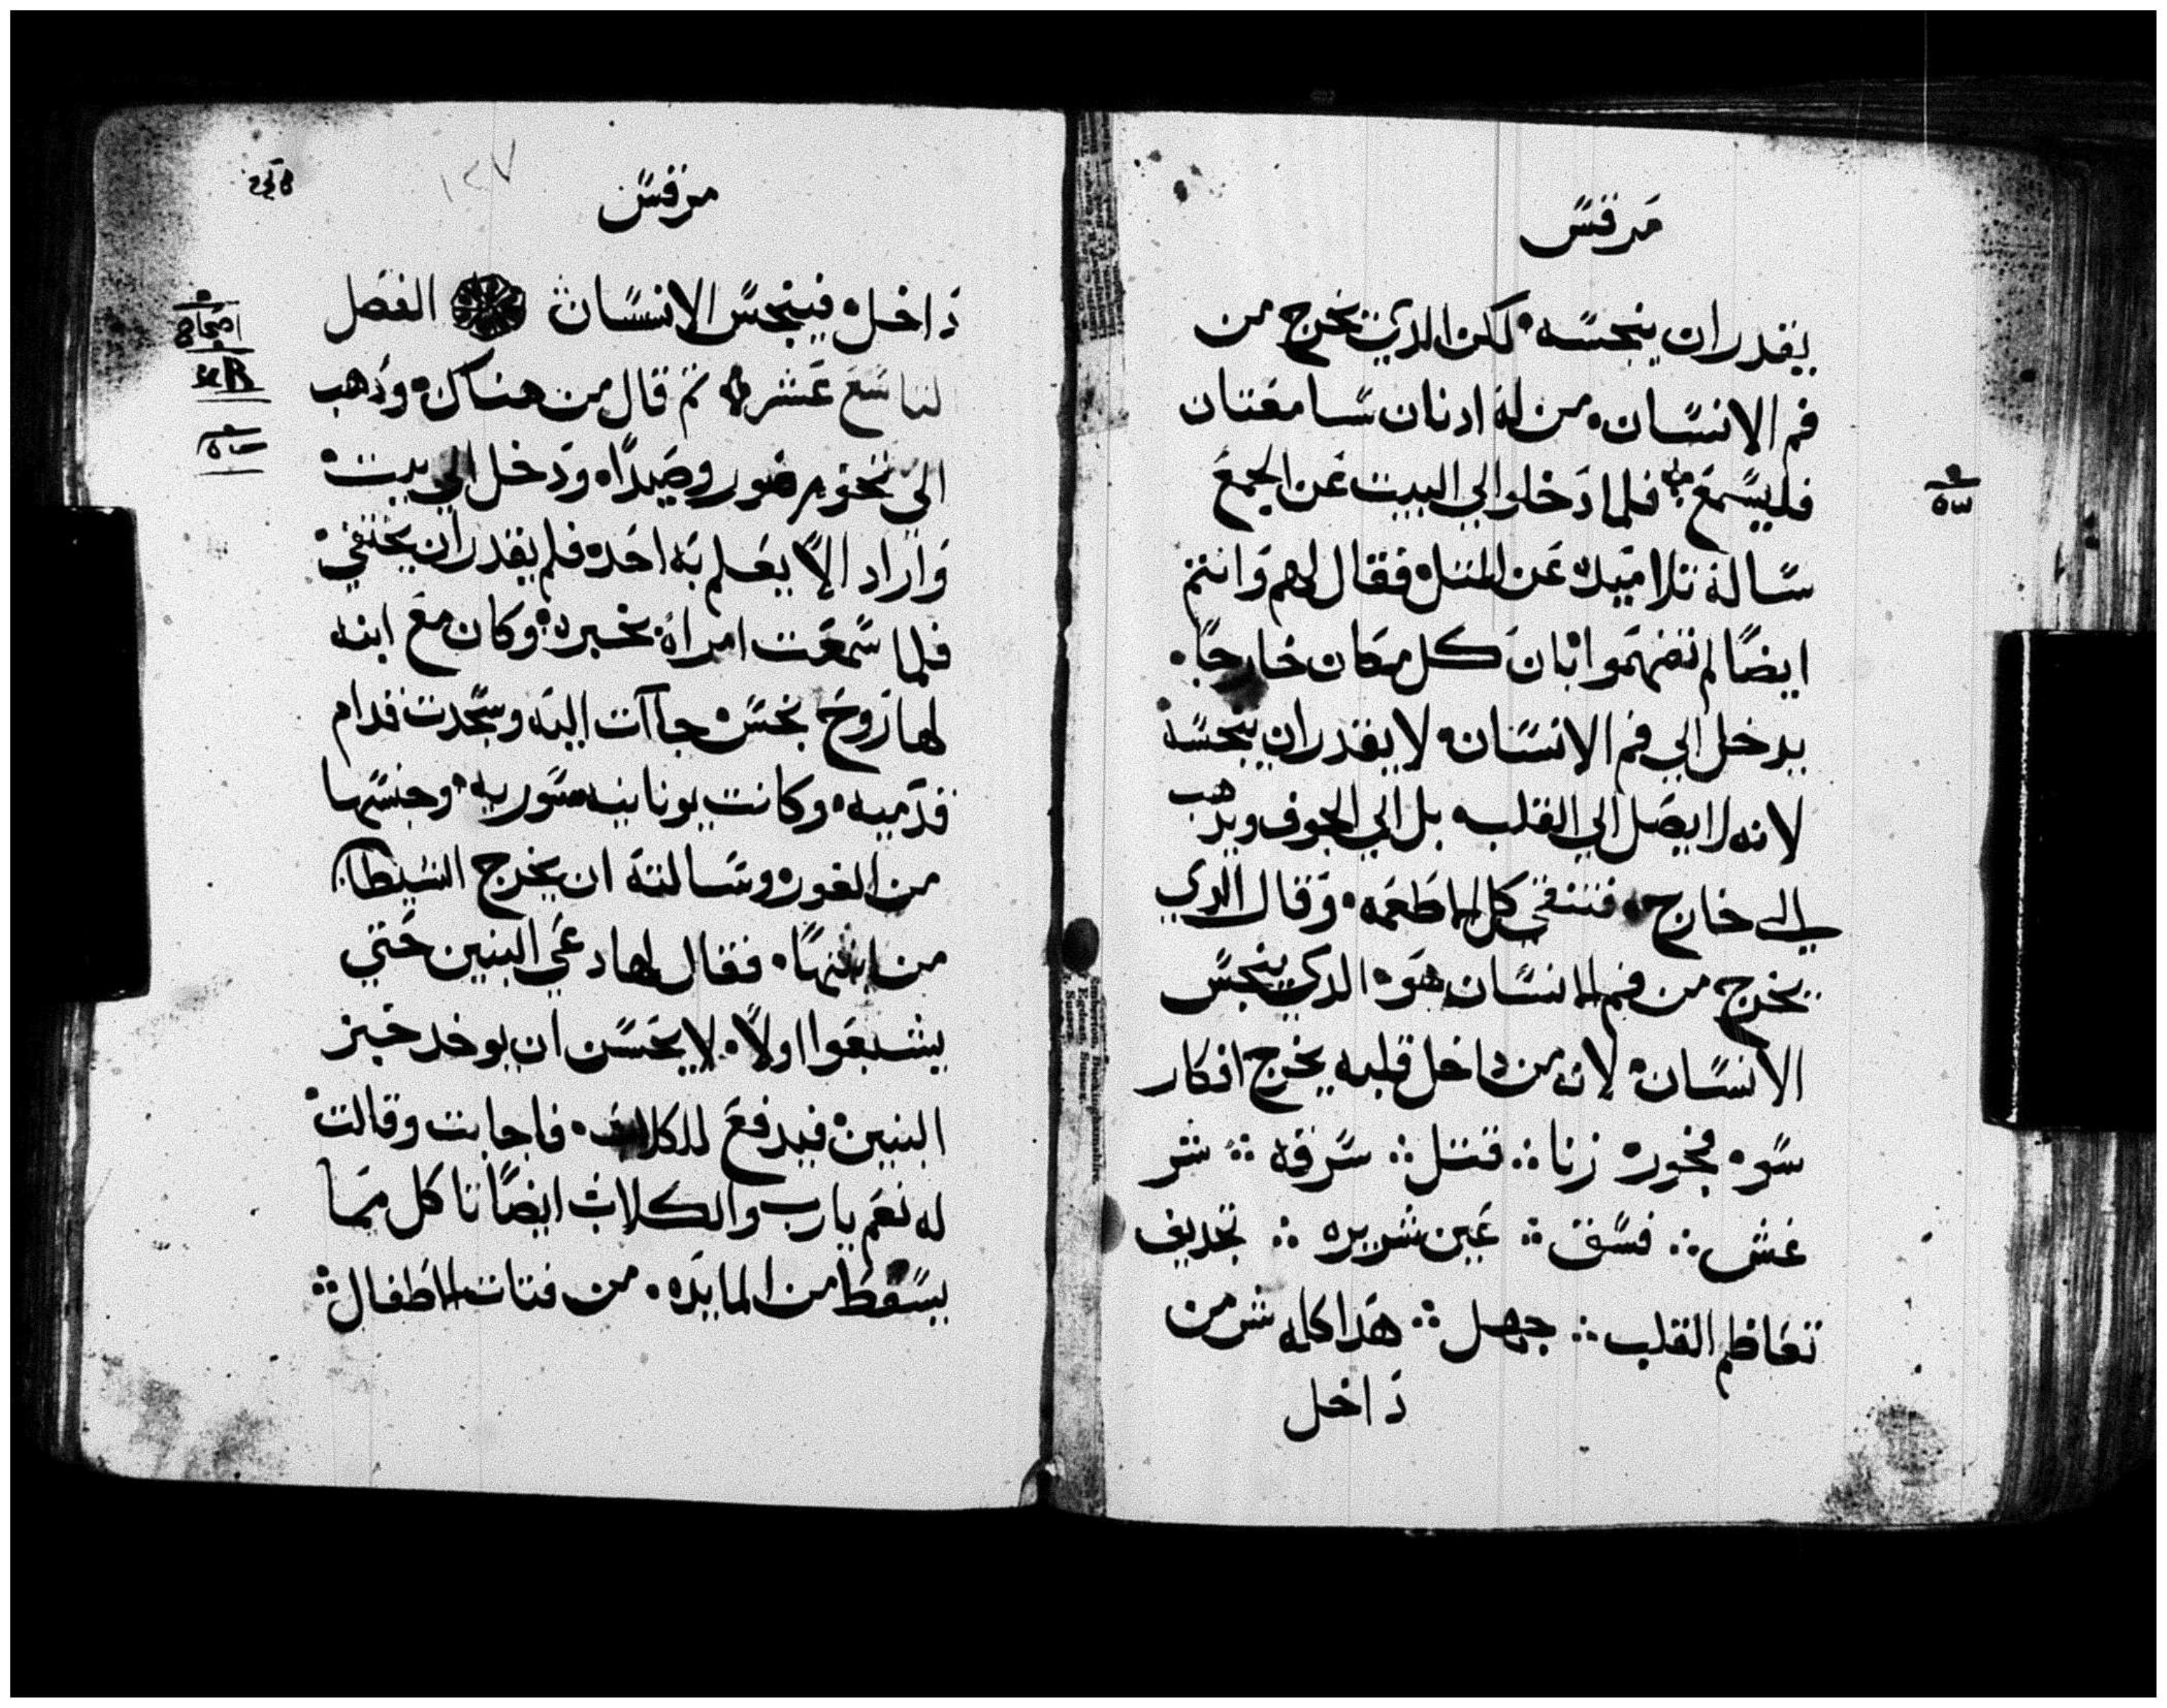 مرقس
يقدر ان ينجسه لكن الدي يخرج من
فم الانسان من له ادنان سامعتان
فليسمع فلما دخلوا الي البيت عن الجمع
ساله تلاميده عن المتل فقال لهم وانتم
ايضًا لم تفهموا بان كل مكان خارجًا
يدخل الي فم الانسان لا يقدر ان ينجسه
لانه لا يصل الي القلب بل الي الجوف ويدهب
الي خارج فتنقي كل الاطعمه وقال الدي
يخرج من فم الانسان هو الدي ينجس
الانسان لانه من داخل قلبه يخرج افكار
سو فجور زنا قتل سرقه شر
غش فسق عين شريره تجديف
تعاظم القلب جهل هدا كله شر من
داخل
مرقس
١٢٧
داخل فينجس الانسان الفصل
التاسع عشر تم قال من هناك ودهب
الي تخوم صور وصيدا ودخل الي بيت
واراد الا يعلم به احد فلم يقدر ان يختفي
فلما سمعت امراة بخبره وكان مع ابنه
لها روح نجس جاات اليه وسجدت قدام
قدميه وكانت يونانيه سوريه وجنسها
من الغور وسالته ان يخرج الشيطان
من ابنتها فقال لها دعي البنين حتي
يشبعوا اولًا لا يحسن ان يوخد خبز
البنين فيدفع للكلاب فاجابت وقالت
له نعم يارب والكلاب ايضًا تاكل مما
يسقط من المايده من فتات الاطفال
اصحاح